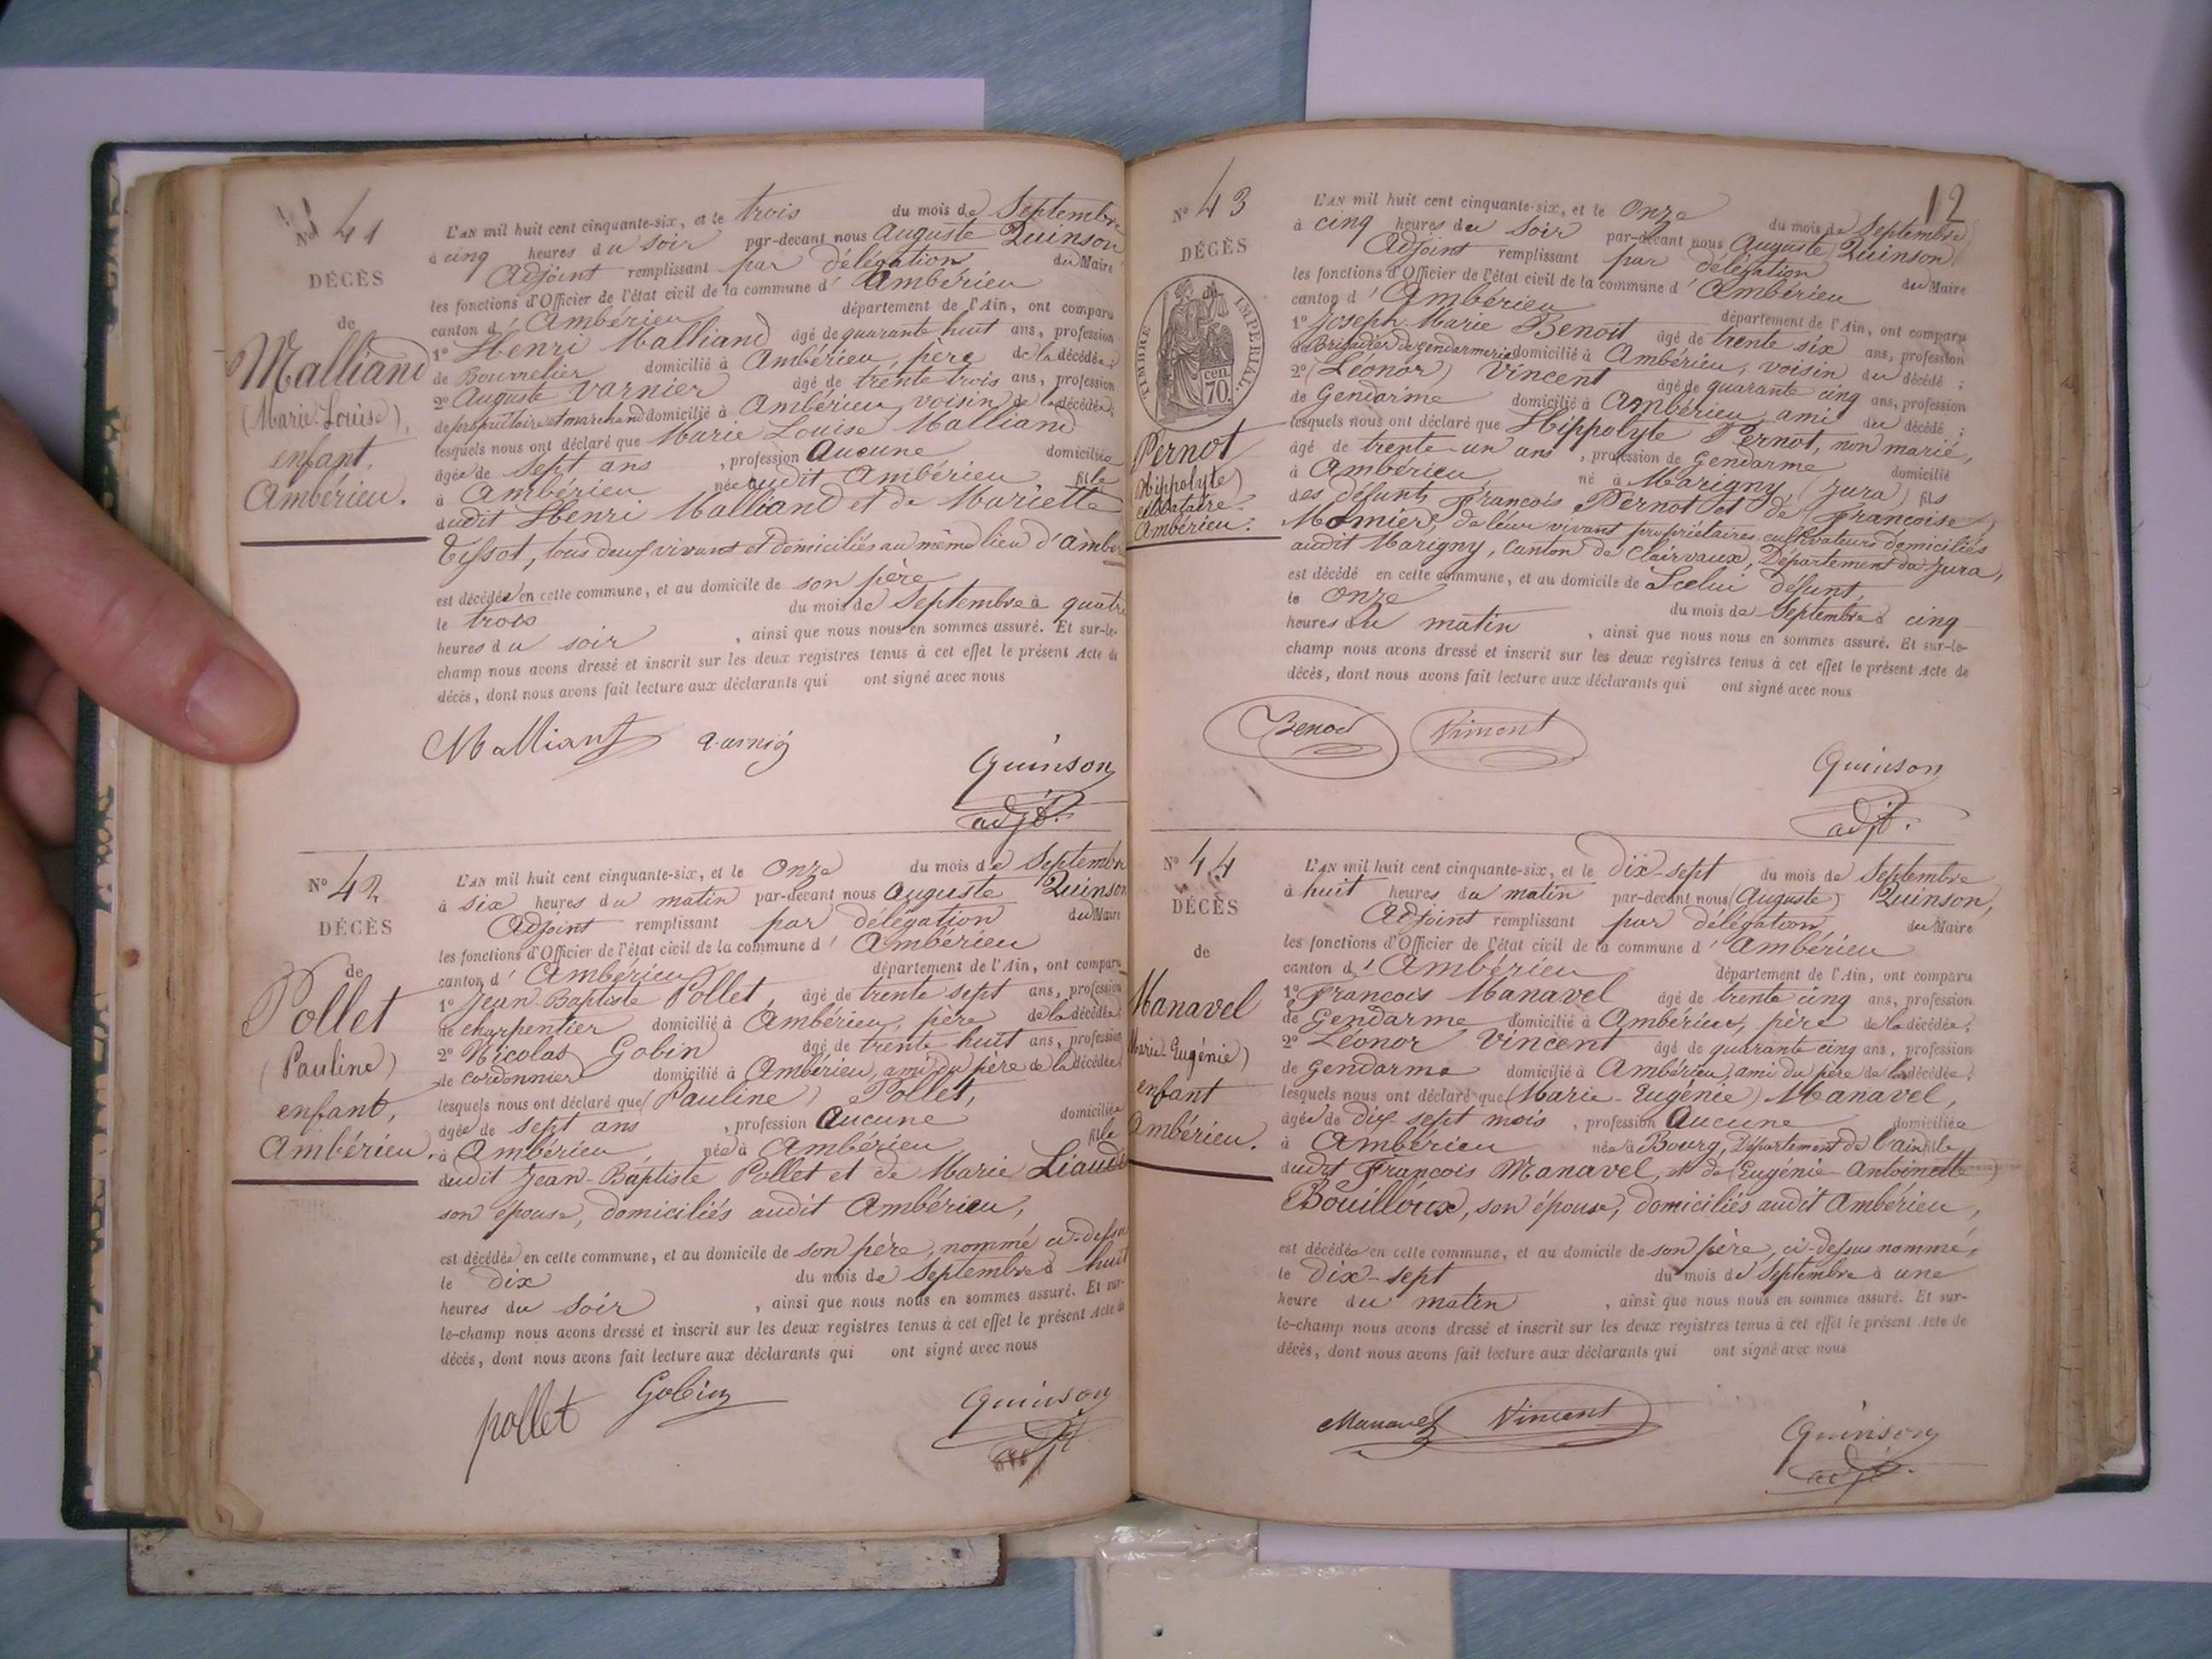 N° 41
DÉCÈS
de
Malliand
(Marie-Louise),
enfant,
Ambérieu.
L'AN mil huit cent cinquante-six, et le trois du mois de Septembre
à cinq heures du soir par-devant nous Auguste Quinson
Adjoint remplissant par délégation du Maire
les fonctions d'Officier de l'état civil de la commune d'Ambérieu
canton d'Ambérieu département de l'Ain, ont comparu
1° Henri Malliand âgé de quarante huit ans, profession
de Bourrelier domicilié à Ambérieu, père de la décédée;
2° Auguste Varnier âgé de trente trois ans, profession
de propriétaire et marchand domicilié à Ambérieu, voisin de la décédée;
lesquels nous ont déclaré que Marie Louise Malliand
âgée de sept ans, profession Aucune domiciliée
à Ambérieu née audit Ambérieu fille
dudit Henri Malliand et de Mariette
Tissot, tous deux vivants et domiciliés au même lieu d'Ambér
est décédée en cette commune, et au domicile de son père
le trois du mois de Septembre à quatre
heures du soir, ainsi que nous nous en sommes assuré. Et sur-le-
champ nous avons dressé et inscrit sur les deux registres tenus à cet effet le présent Acte de
décès, dont nous avons fait lecture aux déclarants qui ont signé avec nous
Malliand
Quinson
adjt.
N° 42
DÉCÈS
de
Pollet
(Pauline)
enfant,
Ambérieu.
L'AN mil huit cent cinquante-six, et le onze du mois de Septembre
à six heures du matin par-devant nous Auguste Quinson
Adjoint remplissant par délégation du Maire
les fonctions d'Officier de l'état civil de la commune d'Ambérieu
canton d'Ambérieu département de l'Ain, ont comparu
1° Jean-Baptiste Pollet, âgé de trente sept ans, profession
de charpentier domicilié à Ambérieu, père de la décédée;
2° Nicolas Gobin âgé de trente huit ans, profession
de cordonnier domicilié à Ambérieu, ami du père de la décédée;
lesquels nous ont déclaré que (Pauline) Pollet,
âgée de sept ans, profession Aucune domiciliée
à Ambérieu, née à Ambérieu fille
dudit Jean-Baptiste Pollet et de Marie Liaud
son épouse, domiciliés audit Ambérieu,
est décédée en cette commune, et au domicile de son père, nommé ci-dessus
le dix du mois de Septembre à huit
heures du soir, ainsi que nous nous en sommes assuré. Et sur-
le-champ nous avons dressé et inscrit sur les deux registres tenus à cet effet le présent Acte de
décès, dont nous avons fait lecture aux déclarants qui ont signé avec nous
pollet Gobin
Quinson
12
N° 43
DÉCÈS
de
TIMBRE IMPERIAL
70 cen.
Pernot
(Hippolyte)
célibataire.
Ambérieu.
L'AN mil huit cent cinquante-six, et le onze du mois de Septembre
à cinq heures du soir par-devant nous Auguste Quinson
Adjoint remplissant par délégation du Maire
les fonctions d'Officier de l'état civil de la commune d'Ambérieu
canton d'Ambérieu département de l'Ain, ont comparu
1° Joseph-Marie Benoit âgé de trente six ans, profession
de Brigadier de gendarmerie domicilié à Ambérieu, voisin du décédé;
2° (Léonor) Vincent âgé de quarante cinq ans, profession
de Gendarme domicilié à Ambérieu, ami du décédé;
lesquels nous ont déclaré que Hippolyte Pernot, non marié,
âgé de trente-un ans, profession de Gendarme domicilié
à Ambérieu né à Marigny (Jura) fils
des défunts François Pernot et de (Françoise)
de leur vivant propriétaires-cultivateurs domiciliés
audit Marigny, Canton de Clairvaux, Département du Jura,
est décédé en cette commune, et au domicile de Icelui défunt,
le onze du mois de Septembre à cinq
heures du matin, ainsi que nous nous en sommes assuré. Et sur-le-
champ nous avons dressé et inscrit sur les deux registres tenus à cet effet le présent Acte de
décès, dont nous avons fait lecture aux déclarants qui ont signé avec nous
Benoit Vincent
Quinson
adjt.
N° 44
DÉCÈS
de
Manavel
Marie-Eugénie)
enfant
Ambérieu.
L'AN mil huit cent cinquante-six, et le dix-sept du mois de Septembre
à huit heures du matin par-devant nous (Auguste) Quinson,
Adjoint remplissant par délégation du Maire
les fonctions d'Officier de l'état civil de la commune d'Ambérieu
canton d'Ambérieu département de l'Ain, ont comparu
1° François Manavel âgé de trente cinq ans, profession
de Gendarme domicilié à Ambérieu, père de la décédée;
2° Léonor Vincent âgé de quarante cinq ans, profession
de Gendarme domicilié à Ambérieu, ami du père de la décédée;
lesquels nous ont déclaré que (Marie-Eugénie) Manavel,
âgée de dix-sept mois, profession Aucune domiciliée
à Ambérieu née à Bourg, Département de l'ain fille
dudit François Manavel, et de (Eugénie-Antoinette)
Bouilloux, son épouse, domiciliés audit Ambérieu,
est décédée en cette commune, et au domicile de son père, ci-dessus nommé,
le dix-sept du mois de Septembre à une
heure du matin, ainsi que nous nous en sommes assuré. Et sur-
le-champ nous avons dressé et inscrit sur les deux registres tenus à cet effet le présent Acte de
décès, dont nous avons fait lecture aux déclarants qui ont signé avec nous
Manavel Vincent
Quinson
adjt.